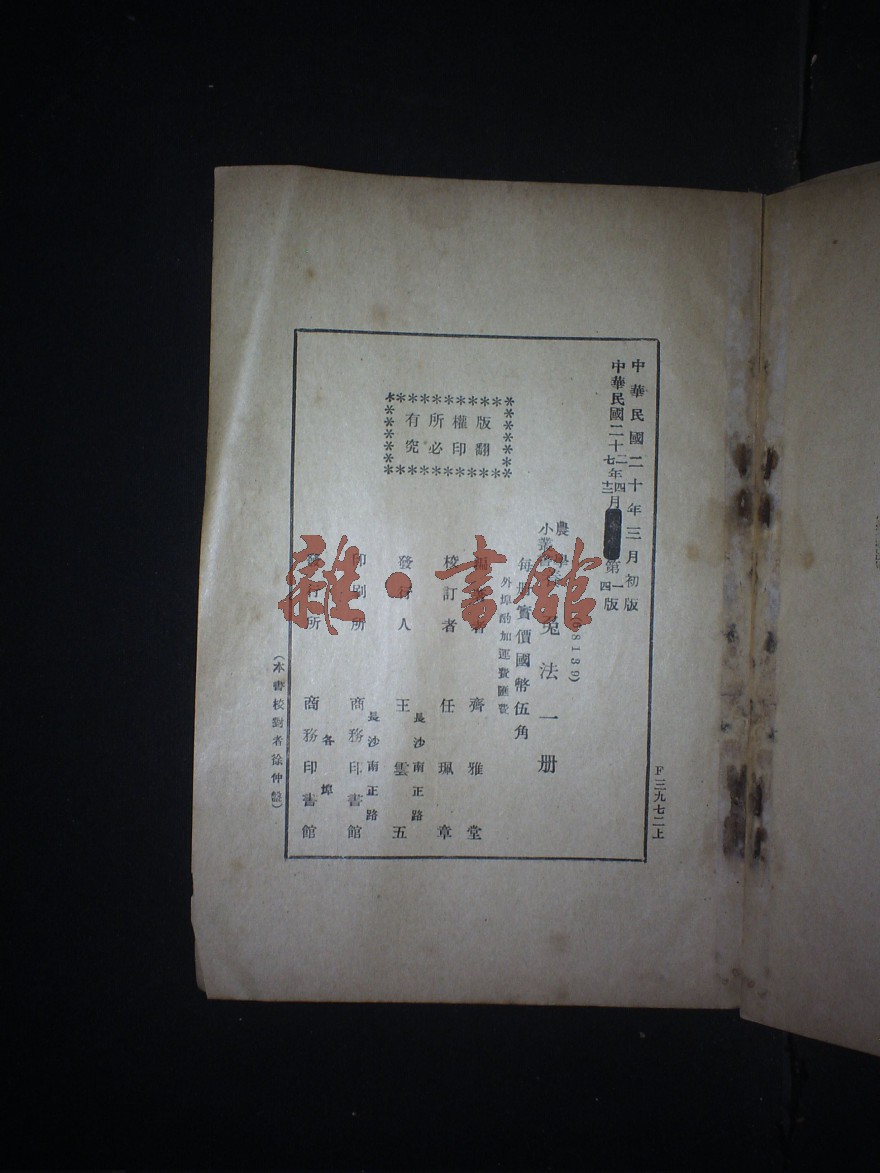 中華民國二十年三月初版
中華民國二十七年十二月第四版
農學
小叢書
兔法一册
每册實價國幣伍角
外埠酌加運費匯費
版權所有
翻印必究
者 齊雅堂
校訂者 任珮章
發行人 王雲五
長沙南正路
印刷所 商務印書館
長沙南正路
發行所 商務印書館
各埠
(本書校對者徐仲盤)
F三九七二上
雜·書館